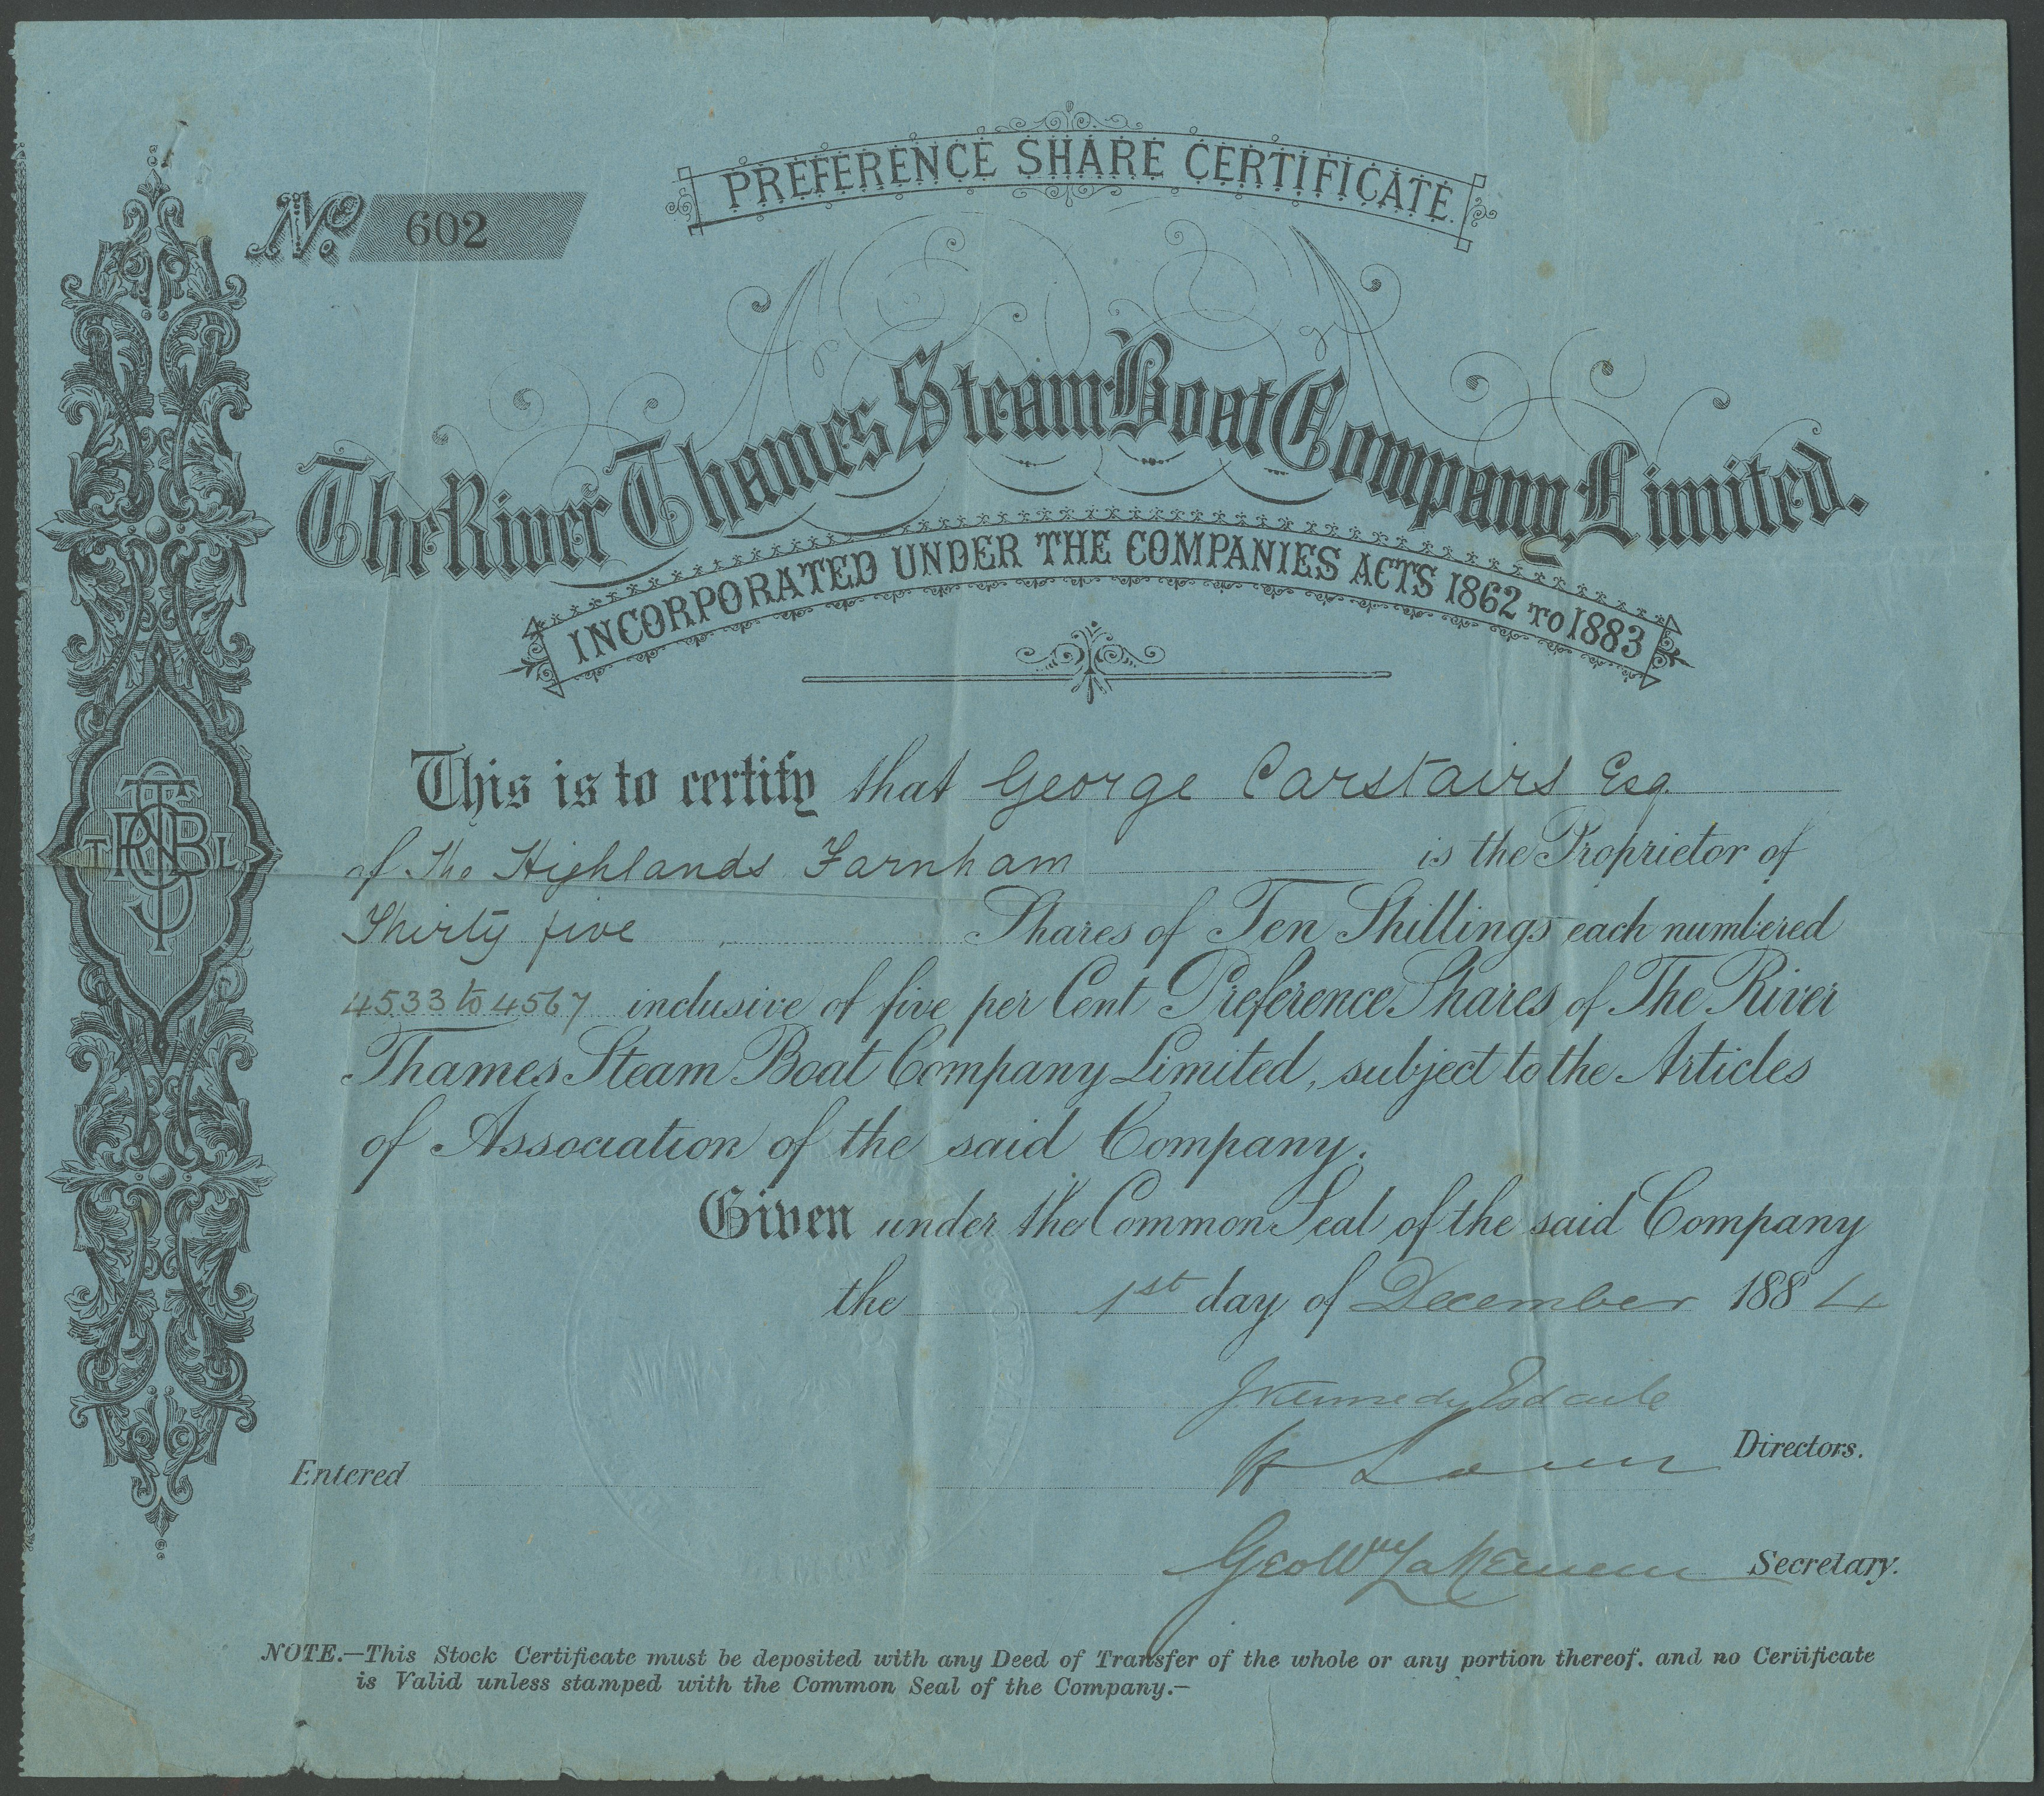 PREFERENCE SHARE CERTIFICATE.
No. 602
The River Thames Steam Boat Company, Limited.
INCORPORATED UNDER THE COMPANIES ACTS 1862 TO 1883
This is to certify that George Carstairs Esq
of The Highlands Farnham is the Proprietor of
Thirty five Shares of Ten Shillings each numbered
4533 to 4567 inclusive of five per Cent Preference Shares of The River
Thames Steam Boat Company Limited, subject to the Articles
of Association of the said Company.
Given under the Common Seal of the said Company
the 1st day of December 1884
J. Kennedy Esdaile
Directors.
Entered
Secretary.
NOTE.—This Stock Certificate must be deposited with any Deed of Transfer of the whole or any portion thereof. and no Certificate
is Valid unless stamped with the Common Seal of the Company.—